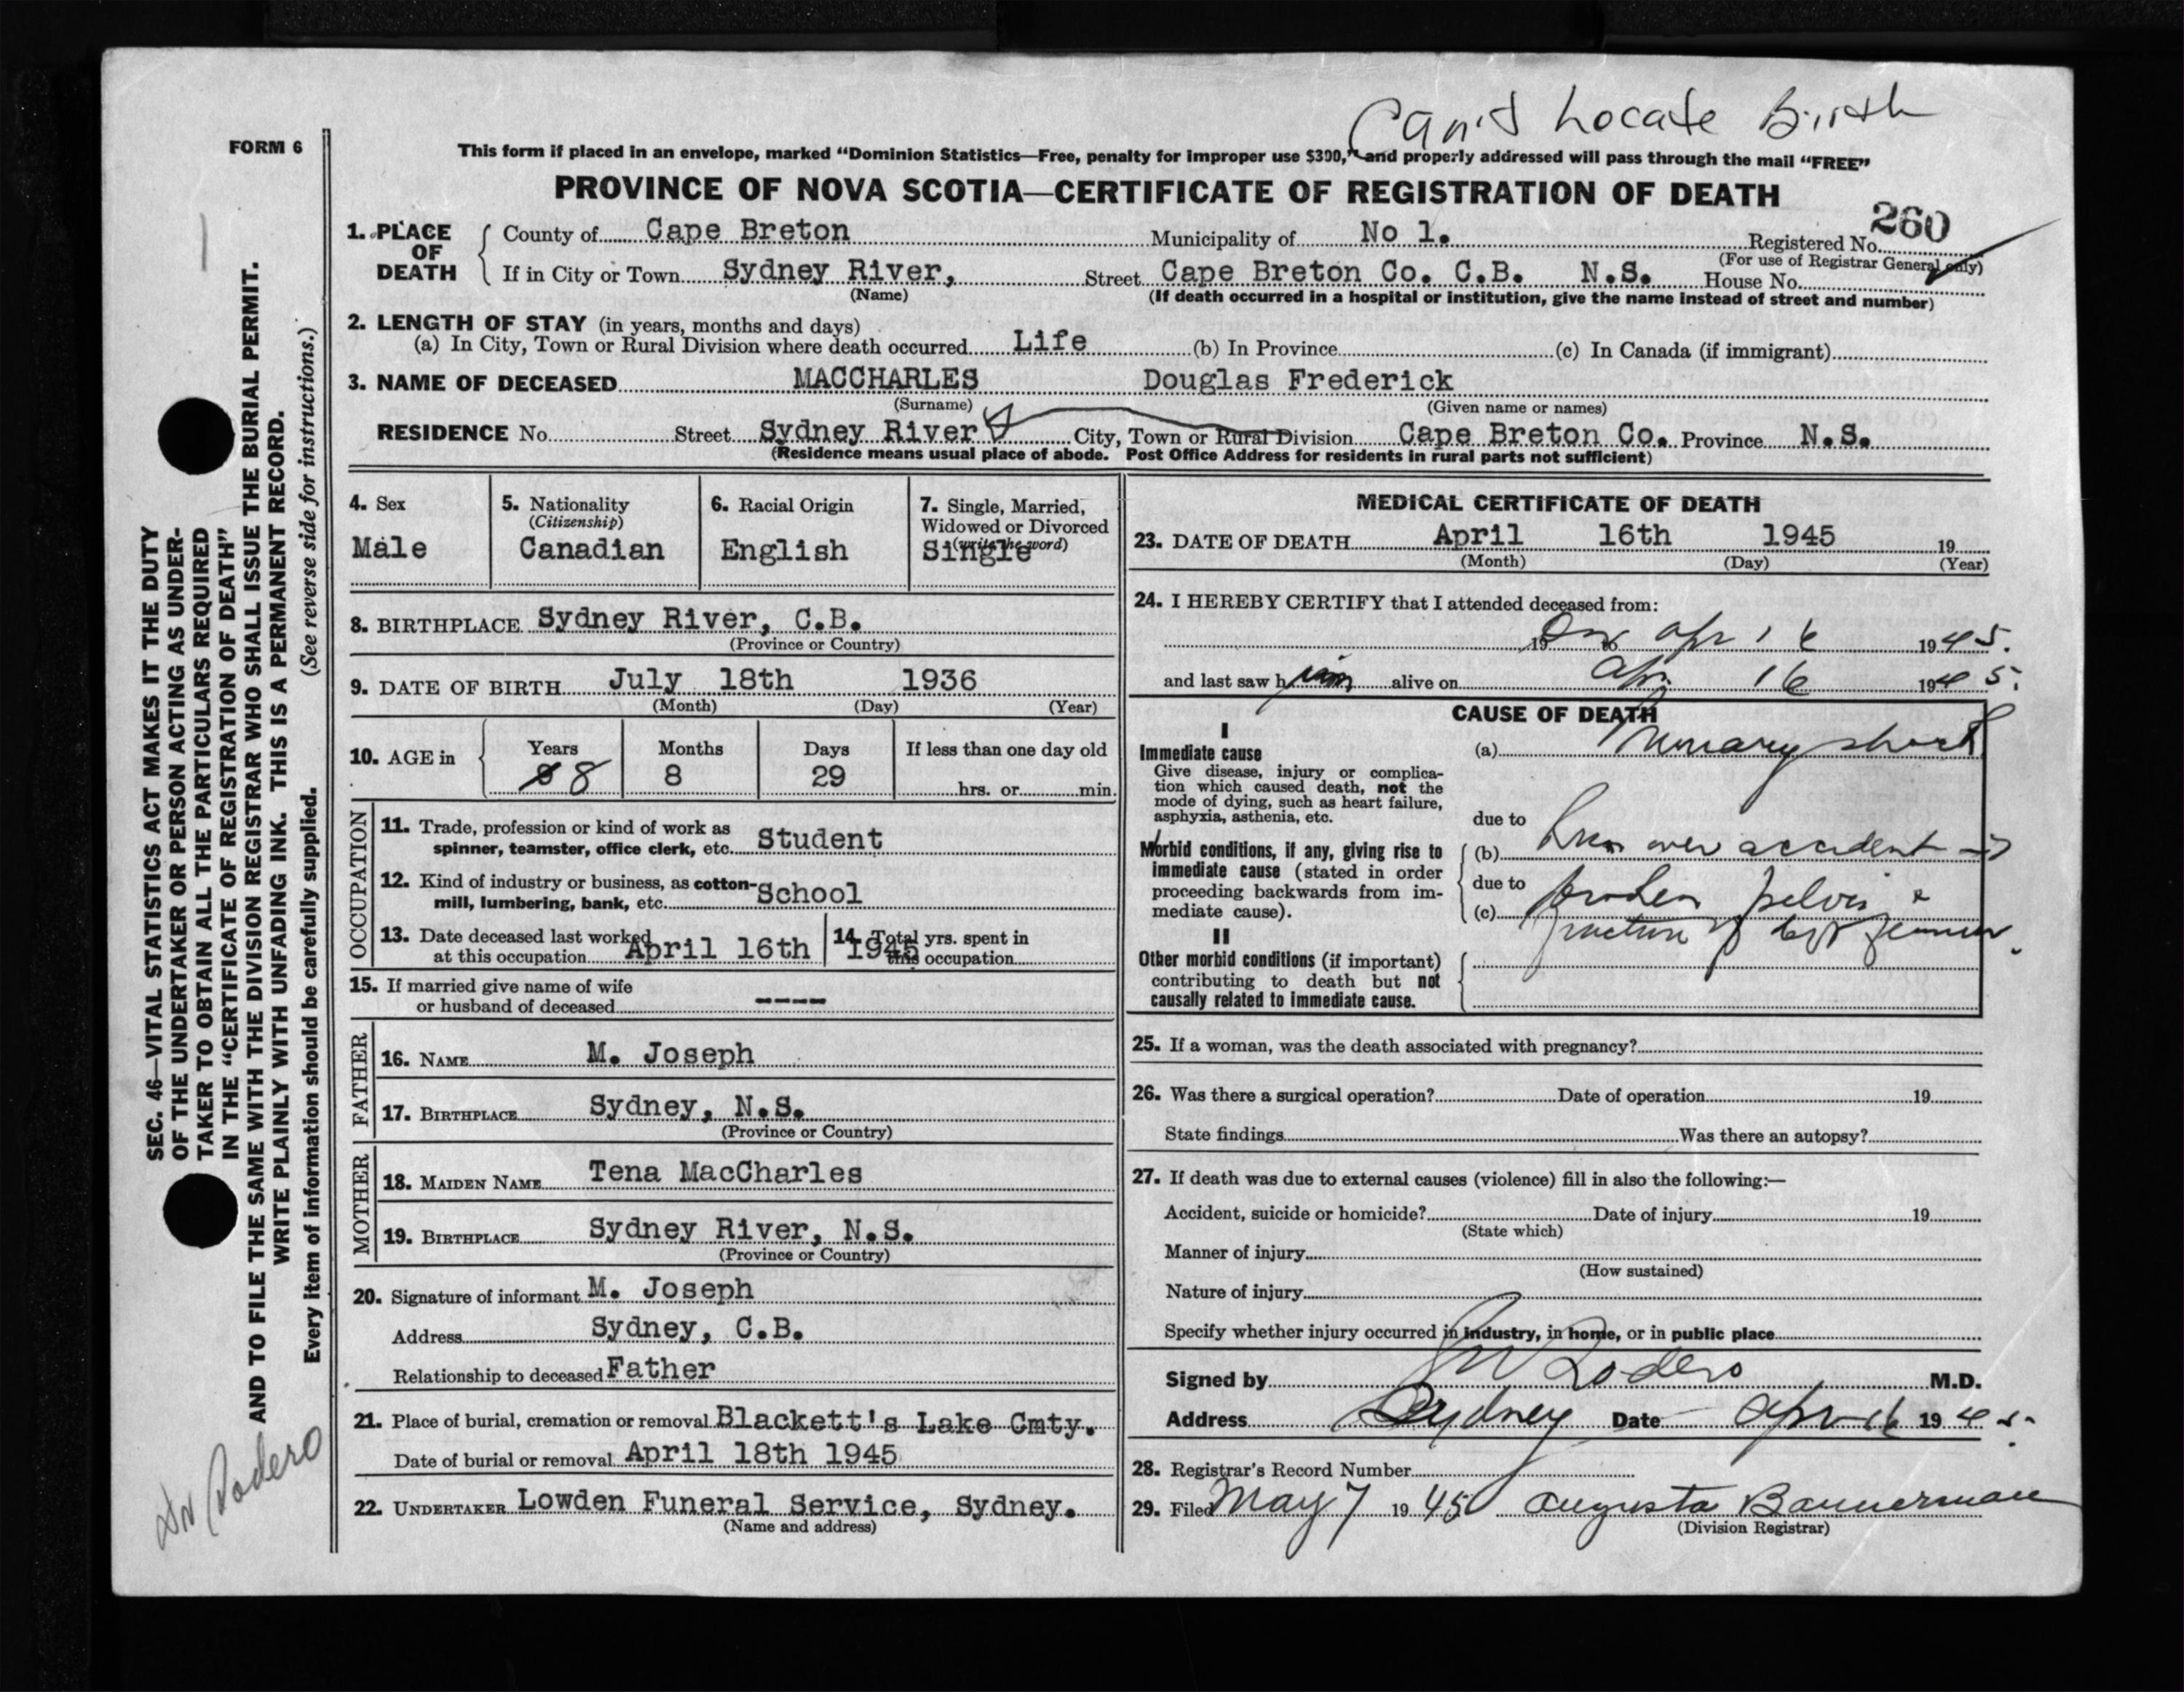 Can't Locate Birth
FORM 6
This form if placed in an envelope, marked “Dominion Statistics—Free, penalty for improper use $300,” and properly addressed will pass through the mail “FREE”
PROVINCE OF NOVA SCOTIA—CERTIFICATE OF REGISTRATION OF DEATH
260
1. PLACE OF DEATH County of Cape Breton Municipality of No 1. Registered No.
(For use of Registrar General only)
If in City or Town Sydney River, Street Cape Breton Co. C.B. N.S. House No.
(Name) (If death occurred in a hospital or institution, give the name instead of street and number)
2. LENGTH OF STAY (in years, months and days)
(a) In City, Town or Rural Division where death occurred Life (b) In Province (c) In Canada (if immigrant)
3. NAME OF DECEASED MACCHARLES Douglas Frederick
(Surname) (Given name or names)
RESIDENCE No. Street Sydney River City, Town or Rural Division Cape Breton Co. Province N.S.
(Residence means usual place of abode. Post Office Address for residents in rural parts not sufficient)
4. Sex
Male
5. Nationality
(Citizenship)
Canadian
6. Racial Origin
English
7. Single, Married,
Widowed or Divorced
(write the word)
Single
8. BIRTHPLACE Sydney River, C.B.
(Province or Country)
9. DATE OF BIRTH July 18th 1936
(Month) (Day) (Year)
10. AGE in Years Months Days If less than one day old
8 8 8 29 hrs. or min.
OCCUPATION
11. Trade, profession or kind of work as
spinner, teamster, office clerk, etc. Student
12. Kind of industry or business, as cotton-
mill, lumbering, bank, etc. School
13. Date deceased last worked
at this occupation April 16th 1945
14. Total yrs. spent in
this occupation
15. If married give name of wife
or husband of deceased ----
FATHER
16. NAME M. Joseph
17. BIRTHPLACE Sydney, N.S.
(Province or Country)
MOTHER
18. MAIDEN NAME Tena MacCharles
19. BIRTHPLACE Sydney River, N.S.
(Province or Country)
20. Signature of informant M. Joseph
Address Sydney, C.B.
Relationship to deceased Father
21. Place of burial, cremation or removal Blackett's Lake Cmty.
Date of burial or removal April 18th 1945
22. UNDERTAKER Lowden Funeral Service, Sydney.
(Name and address)
MEDICAL CERTIFICATE OF DEATH
23. DATE OF DEATH April 16th 1945 19
(Month) (Day) (Year)
24. I HEREBY CERTIFY that I attended deceased from:
19 to On Apr 16 1945.
and last saw h im alive on Apr 16 1945.
CAUSE OF DEATH
I
Immediate cause
Give disease, injury or complica-
tion which caused death, not the
mode of dying, such as heart failure,
asphyxia, asthenia, etc.
(a) Primary shock
due to
Morbid conditions, if any, giving rise to
immediate cause (stated in order
proceeding backwards from im-
mediate cause).
(b) run over accident →
due to
(c) broken pelvis &
fracture of left femur.
II
Other morbid conditions (if important)
contributing to death but not
causally related to immediate cause.
25. If a woman, was the death associated with pregnancy?
26. Was there a surgical operation? Date of operation 19
State findings Was there an autopsy?
27. If death was due to external causes (violence) fill in also the following:—
Accident, suicide or homicide? Date of injury 19
(State which)
Manner of injury
(How sustained)
Nature of injury
Specify whether injury occurred in industry, in home, or in public place
Signed by Rodero M.D.
Address Sydney Date Apr 16 1945.
28. Registrar's Record Number
29. Filed May 7 1945 Augusta Bannerman
(Division Registrar)
SEC. 46—VITAL STATISTICS ACT MAKES IT THE DUTY
OF THE UNDERTAKER OR PERSON ACTING AS UNDER-
TAKER TO OBTAIN ALL THE PARTICULARS REQUIRED
IN THE “CERTIFICATE OF REGISTRATION OF DEATH”
AND TO FILE THE SAME WITH THE DIVISION REGISTRAR WHO SHALL ISSUE THE BURIAL PERMIT.
WRITE PLAINLY WITH UNFADING INK. THIS IS A PERMANENT RECORD.
Every item of information should be carefully supplied. (See reverse side for instructions.)
Dr Rodero